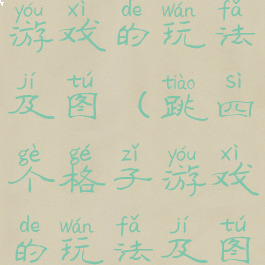 yóu xì de wán fǎ
游戏的玩法
jí tú tiào sì
及图(跳四
gè gé zǐ yóu xì
个格子游戏
de wán fǎ jí tú
的玩法及图